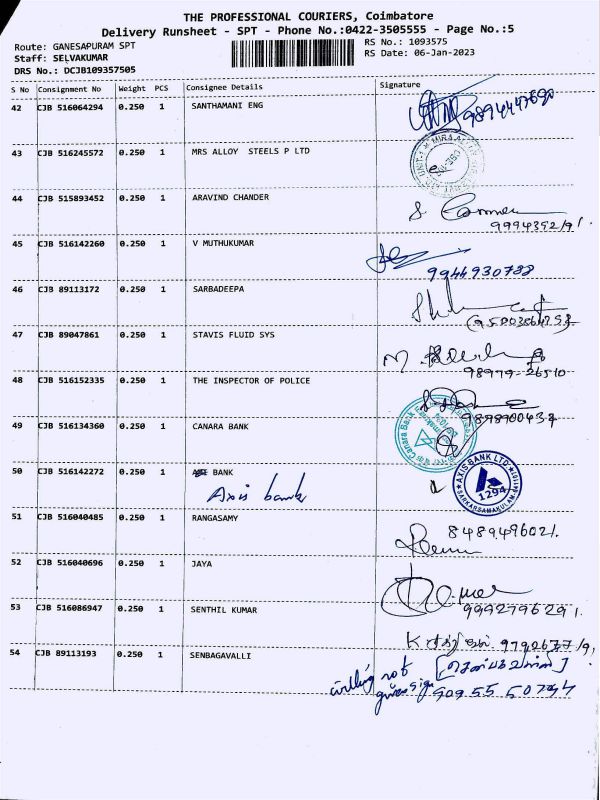 THE PROFESSIONAL COURIERS, Coimbatore
Delivery Runsheet - SPT - Phone No.:0422-3505555 - Page No.:5
Route: GANESAPURAM SPT
RS No.: 1093575
Staff: SELVAKUMAR
RS Date: 06-Jan-2023
DRS No.: DCJB109357505
S No Consignment No Weight PCS Consignee Details Signature
42 CJB 516064294 0.250 1 SANTHAMANI ENG
43 CJB 516245572 0.250 1 MRS ALLOY STEELS P LTD
44 CJB 515893452 0.250 1 ARAVIND CHANDER
45 CJB 516142260 0.250 1 V MUTHUKUMAR
9944930788
46 CJB 89113172 0.250 1 SARBADEEPA
47 CJB 89047861 0.250 1 STAVIS FLUID SYS
98979-26510
48 CJB 516152335 0.250 1 THE INSPECTOR OF POLICE
9898900437
49 CJB 516134360 0.250 1 CANARA BANK
Canara Bank
50 CJB 516142272 0.250 1 BANK
Axis bank
AXIS BANK LTD.
1294
51 CJB 516040485 0.250 1 RANGASAMY
8489496021
52 CJB 516040696 0.250 1 JAYA
53 CJB 516086947 0.250 1 SENTHIL KUMAR
9992796291
54 CJB 89113193 0.250 1 SENBAGAVALLI
willing not
90955 50794